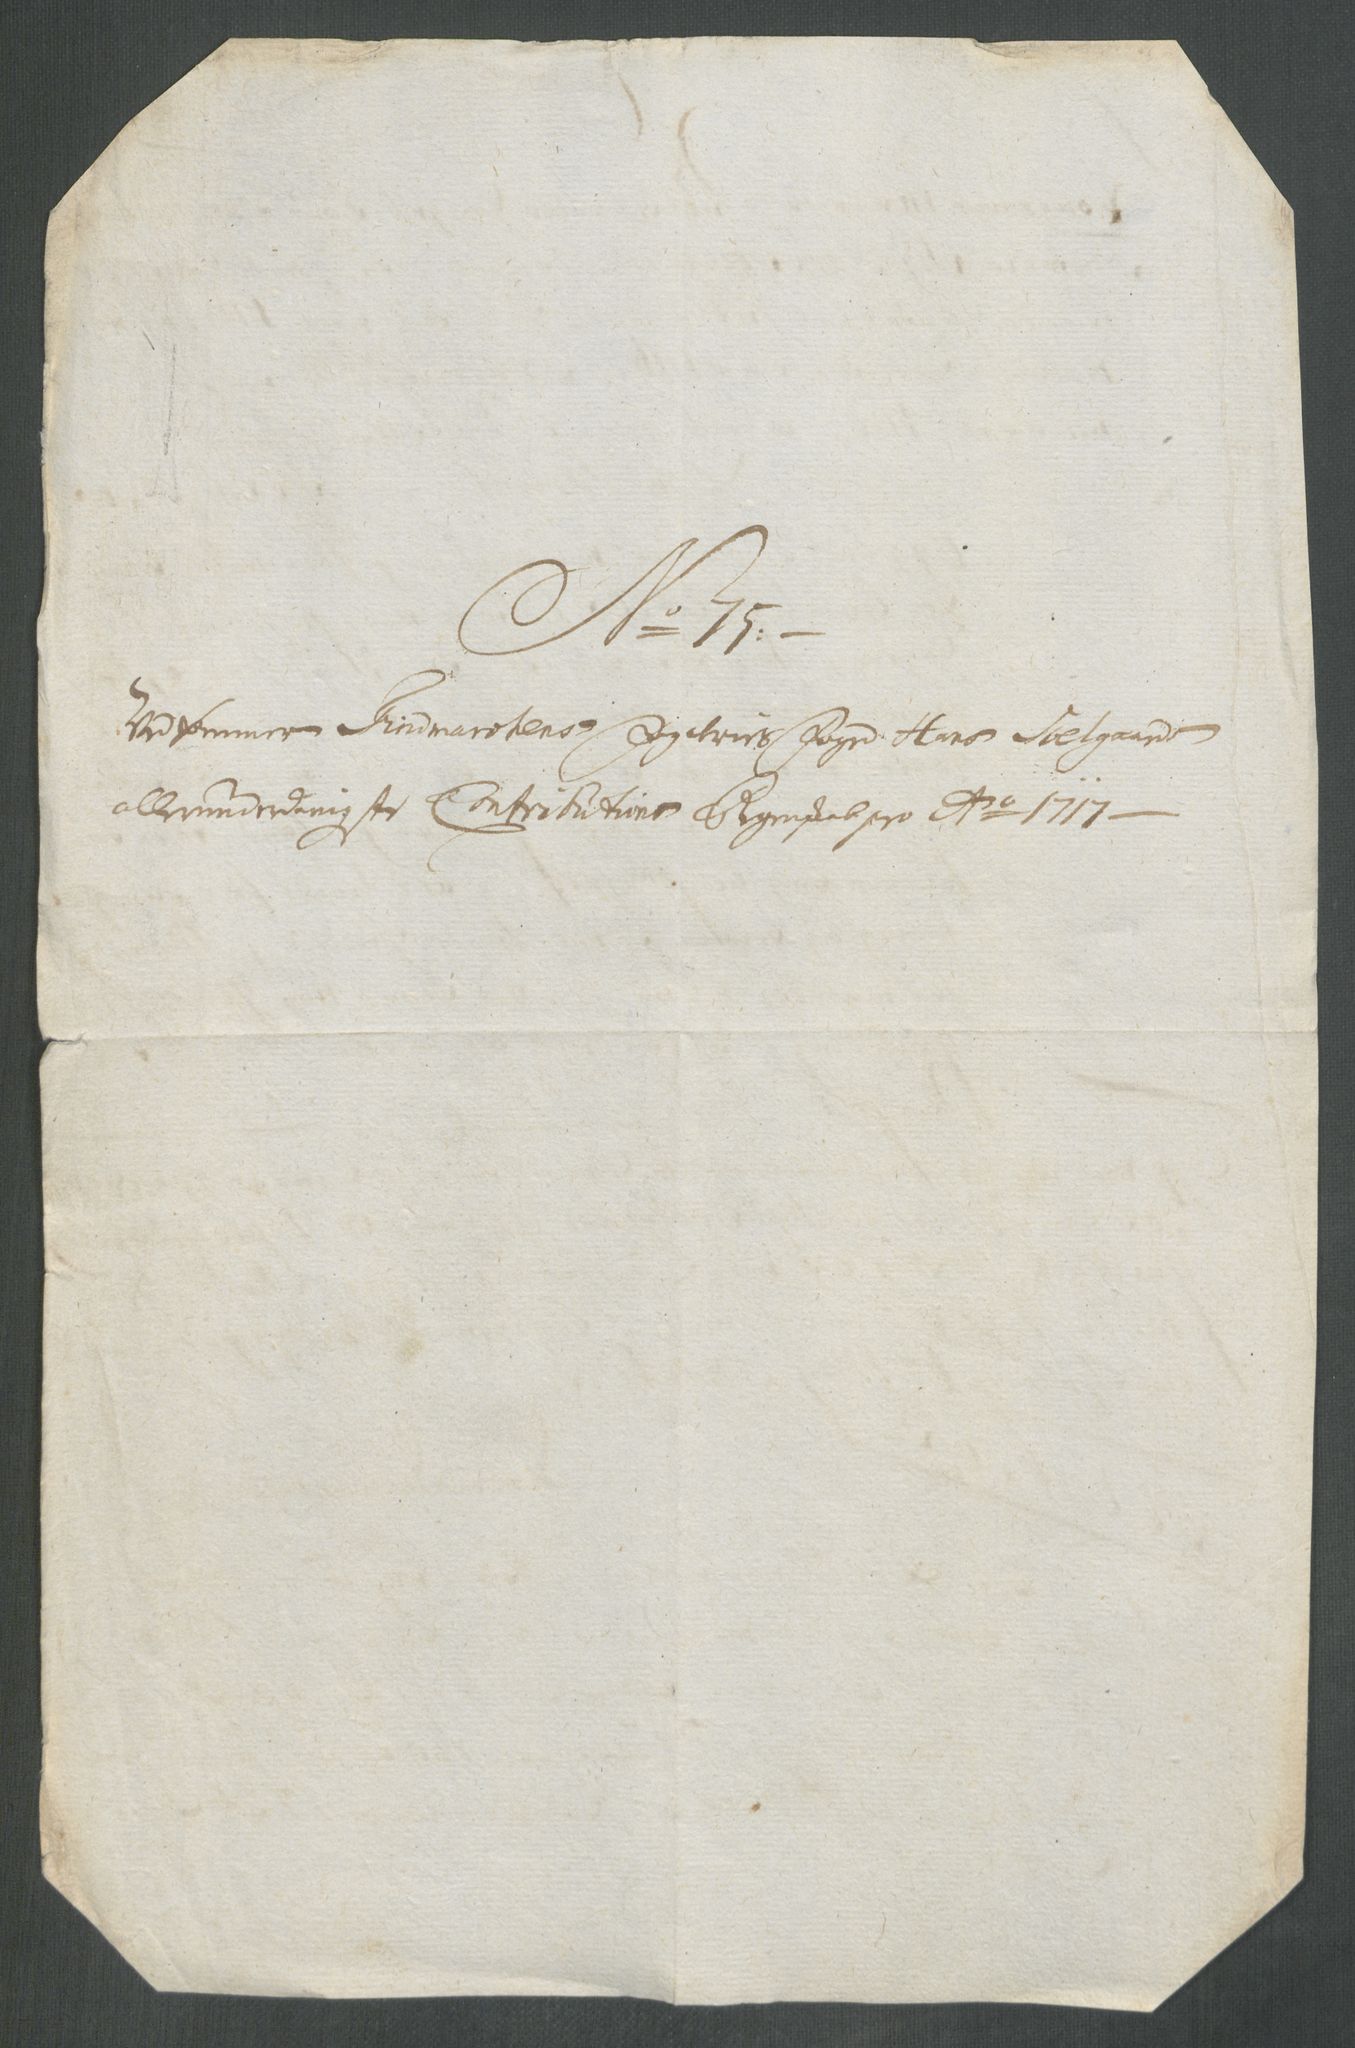 No 75:
Vedkommer Findmarchens Fogderies Fogd Hans Soelgaards
allerunderdanigste Contributions Regenskab pro Ao 1717